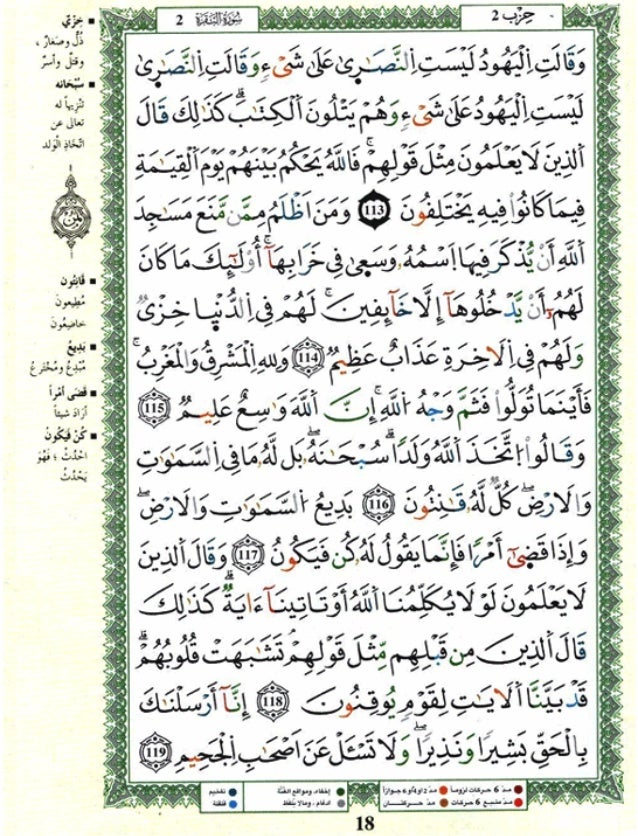 حِزْب 2
سُورَةُ البَقَرَة 2
وَقَالَتِ اِ۬لْيَهُودُ لَيْسَتِ اِ۬لنَّصَٰر۪ىٰ عَلَىٰ شَےْءٖ وَقَالَتِ اِ۬لنَّصَٰر۪ىٰ
لَيْسَتِ اِ۬لْيَهُودُ عَلَىٰ شَےْءٖ وَهُمْ يَتْلُونَ اَ۬لْكِتَٰبَۖ كَذَٰلِكَ قَالَ
اَ۬لذِينَ لَا يَعْلَمُونَ مِثْلَ قَوْلِهِمْۖ فَاللَّهُ يَحْكُمُ بَيْنَهُمْ يَوْمَ اَ۬لْقِيَٰمَةِ
فِيمَا كَانُواْ فِيهِ يَخْتَلِفُونَ 113 وَمَنَ اَظْلَمُ مِمَّن مَّنَعَ مَسَٰجِدَ
اَ۬للَّهِ أَنْ يُّذْكَرَ فِيهَا اَ۪سْمُهُۥ وَسَع۪ىٰ فِے خَرَابِهَآۖ أُوْلَٰٓئِكَ مَا كَانَ
لَهُمُۥٓ أَنْ يَّدْخُلُوهَآ إِلَّا خَآئِفِينَۖ لَهُمْ فِے اِ۬لدُّنْي۪ا خِزْيٞ
وَلَهُمْ فِے اِ۬لَاخِرَةِ عَذَابٌ عَظِيمٞ 114 وَلِلهِ اِ۬لْمَشْرِقُ وَالْمَغْرِبُۖ
فَأَيْنَمَا تُوَلُّواْ فَثَمَّ وَجْهُ اُ۬للَّهِۖ إِنَّ اَ۬للَّهَ وَٰسِعٌ عَلِيمٞ 115
وَقَالُواْ اُ۪تَّخَذَ اَ۬للَّهُ وَلَداٗۖ سُبْحَٰنَهُۥۖ بَل لَّهُۥ مَا فِے اِ۬لسَّمَٰوَٰتِ
وَالَارْضِۖ كُلّٞ لَّهُۥ قَٰنِتُونَ 116 بَدِيعُ اُ۬لسَّمَٰوَٰتِ وَالَارْضِۖ
وَإِذَا قَض۪ىٰٓ أَمْراٗ فَإِنَّمَا يَقُولُ لَهُۥ كُن فَيَكُونُ 117 وَقَالَ اَ۬لذِينَ
لَا يَعْلَمُونَ لَوْلَا يُكَلِّمُنَا اَ۬للَّهُ أَوْ تَاتِينَآ ءَايَةٞۖ كَذَٰلِكَ
قَالَ اَ۬لذِينَ مِن قَبْلِهِم مِّثْلَ قَوْلِهِمْۖ تَشَٰبَهَتْ قُلُوبُهُمْۖ
قَدْ بَيَّنَّا اَ۬لَايَٰتِ لِقَوْمٖ يُوقِنُونَ 118 إِنَّآ أَرْسَلْنَٰكَ
بِالْحَقِّ بَشِيراٗ وَنَذِيراٗۖ وَلَا تَسْـَٔلْ عَنَ اَصْحَٰبِ اِ۬لْجَحِيمِ 119
خِزْيٌ
ذُلٌّ وصَغَارٌ ،
وقتل وأسر
سُبْحَانَه
تَنْزِيهاً له
تعالى عن
اتّخاذ الولد
قَانِتُون
مُطِيعون
خاضِعُون
بَدِيعُ
مُبْدِعُ ومُخْتَرِعُ
قَضَى أَمْراً
أرَادَ شيئاً
كُنْ فَيَكُونُ
احْدُثْ ؛ فَهُوَ
يَحْدُثُ
مدّ 6 حركات لزوماً
مدّ 2 أو 4 أو 6 جوازاً
إخفاء، ومواقع الغُنَّة
تفخيم
مدّ مشبع 6 حركات
مدّ حركتان
ادغام، ومالا يُلفظ
قلقلة
18